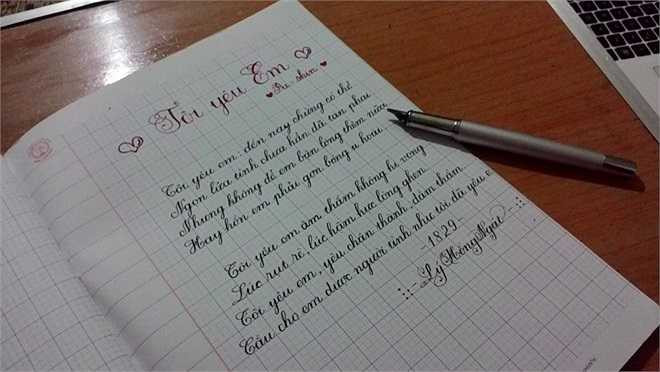 Tôi yêu Em
Pu skin
Tôi yêu em, đến nay chừng có thể
Ngọn lửa tình chưa hẳn đã tàn phai
Nhưng không để em bận lòng thêm nữa
Hay hồn em phải gợn bóng u hoài.
Tôi yêu em âm thầm không hi vọng
Lúc rụt rè, lúc hậm hực lòng ghen
Tôi yêu em, yêu chân thành, đằm thắm
Cầu cho em được người tình như tôi đã yêu e
- 1829 -
Lý Hồng Ngát